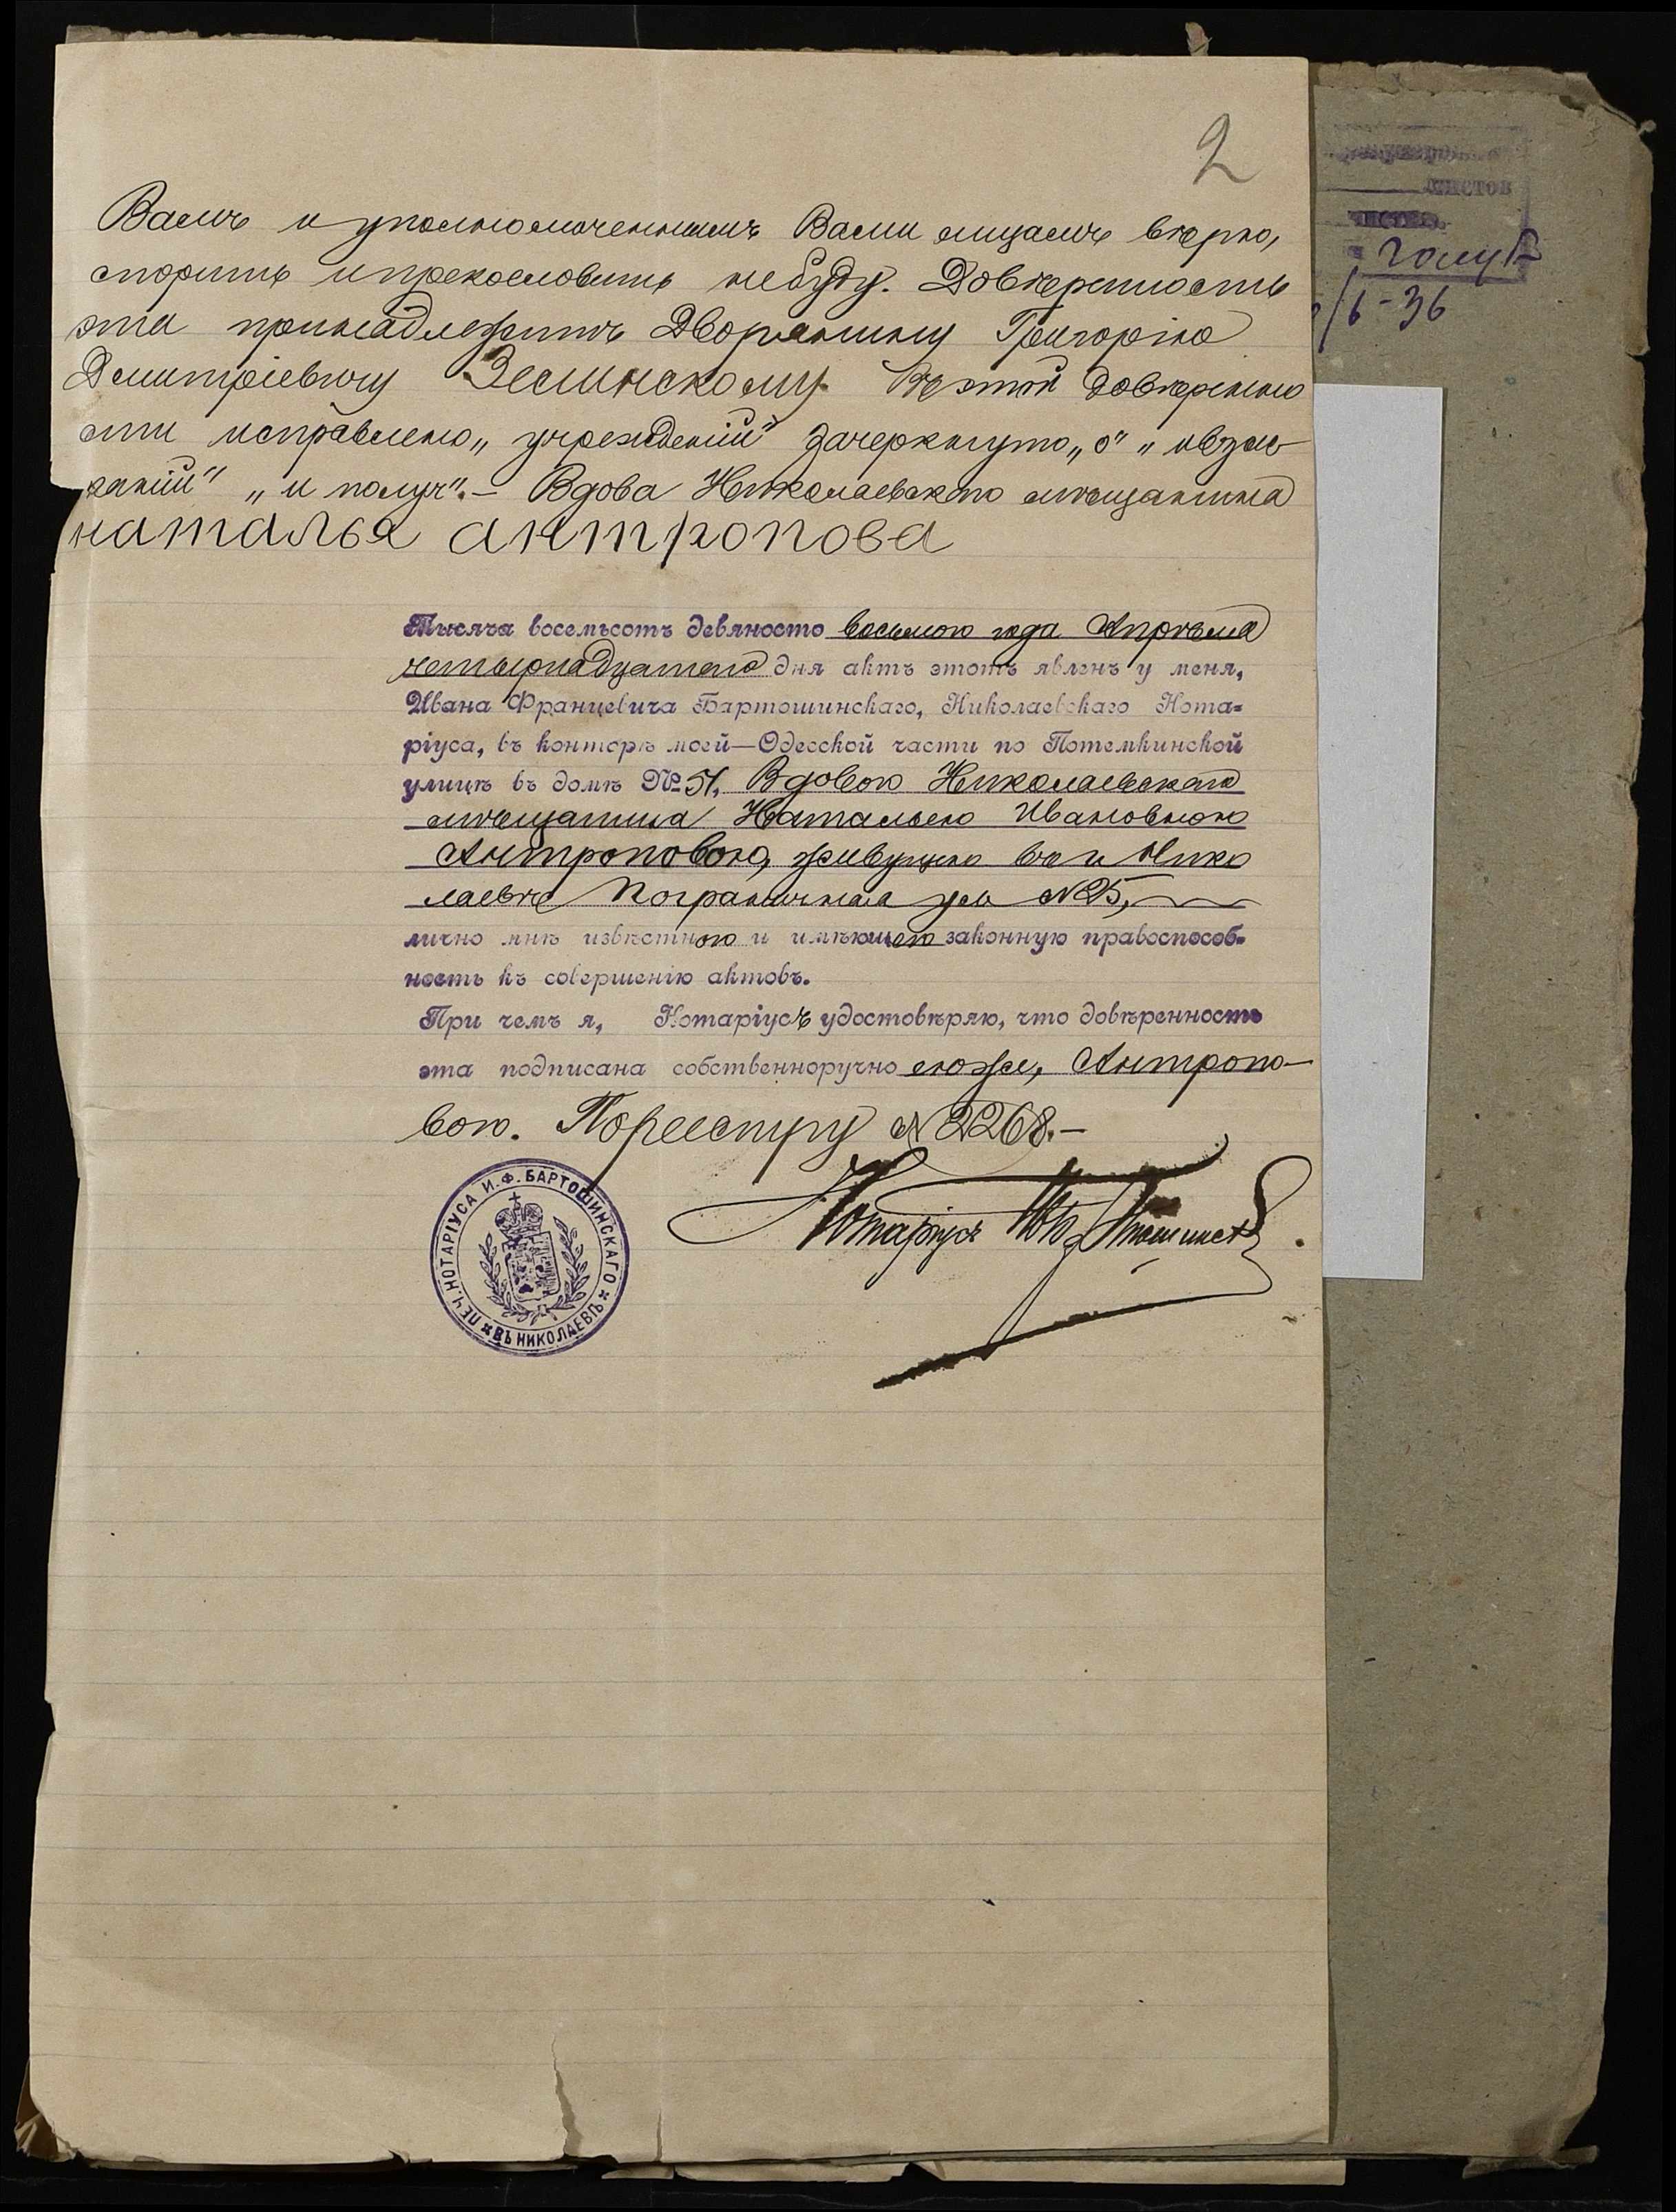 2
Вамъ и уполномоченнымъ Вами лицамъ вѣрю,
спорить и прекословить не буду. Довѣренность
эта принадлежитъ Дворянину Григорію
Дмитріевичу Зелинскому. Въ этой довѣренно
сти исправлено „учрежденій" зачеркнуто „о" „ и взыс-
каній" „и получ". – Вдова Николаевскаго мѣщанина
наталья антропова
Тысяча восемьсотъ девяносто восьмого года Апрѣля
четырнадцатаго дня актъ этотъ явленъ у меня,
Ивана Францевича Бартошинскаго, Николаевскаго Нота=
ріуса, въ конторѣ моей—Одесской части по Потемкинской
улицѣ въ домѣ № 51, Вдовою Николаевскаго
мѣщанина Натальею Ивановною
Антроповою, живущею въ г. Нико
лаевѣ Пограничная ул. №25,
лично мнѣ извѣстною и имѣющею законную правоспособ=
ность къ совершенію актовъ.
При чемъ я, Нотаріусъ удостовѣряю, что довѣренность
эта подписана собственноручно ею же, Антропо-
вою. По реестру №2268.–
Нотаріусъ
ПЕЧ. НОТАРІУСА И. Ф. БАРТОШИНСКАГО ВЪ НИКОЛАЕВѢ
листов
/6-36